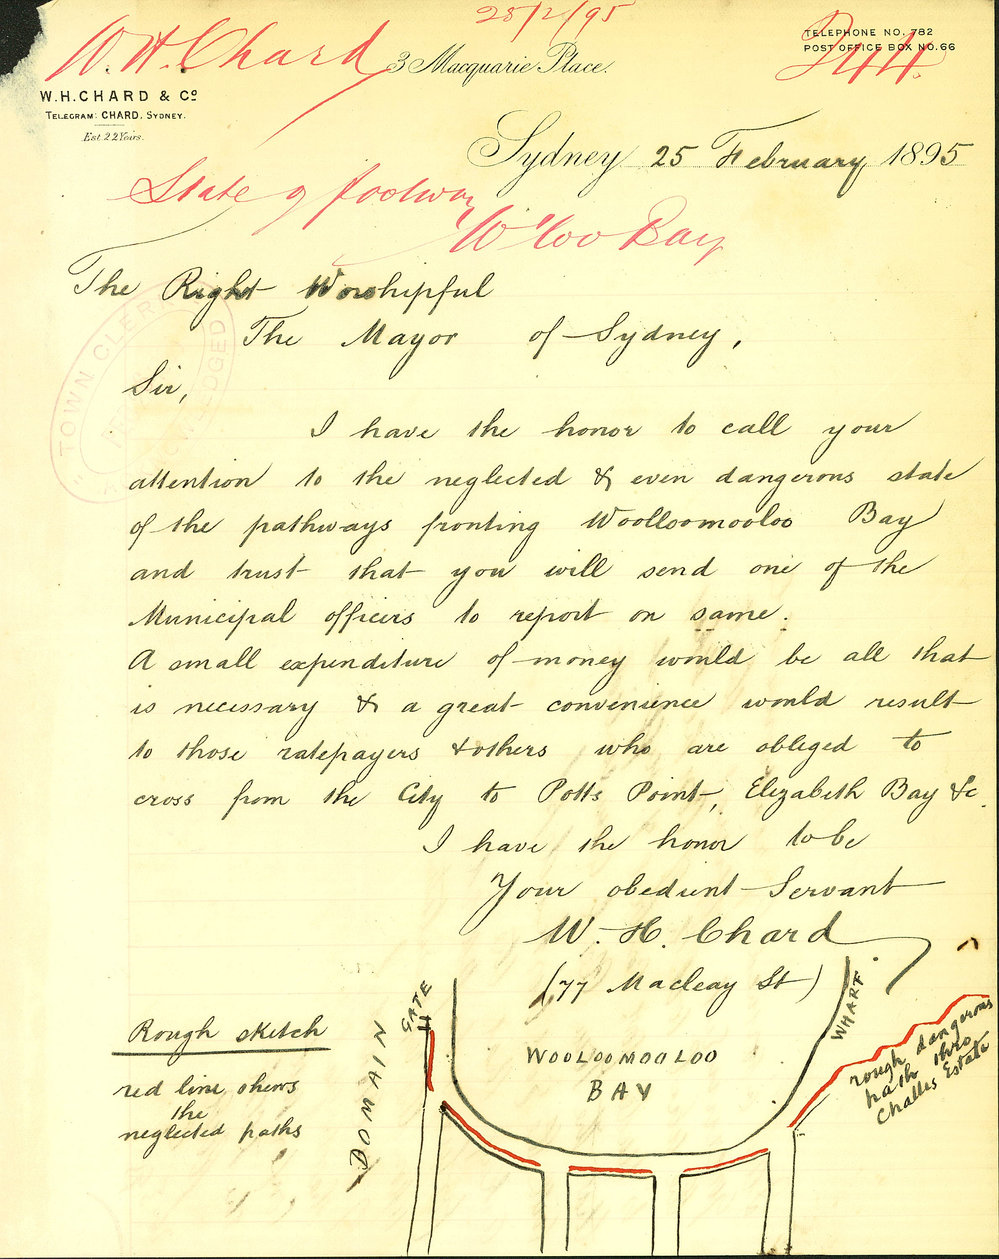 25/2/95
W. H. Chard
TELEPHONE NO. 782
POST OFFICE BOX NO. 66
744.
3 Macquarie Place.
W.H. CHARD & Co
TELEGRAM: CHARD, SYDNEY.
Est. 22 Years.
Sydney 25 February 1895
State of footway
W'loo Bay
The Right Worshipful
The Mayor of Sydney,
TOWN CLERK
Sir,
I have the honor to call your
attention to the neglected & even dangerous state
of the pathways fronting Woolloomooloo Bay
and trust that you will send one of the
Municipal officers to report on same.
A small expenditure of money would be all that
is necessary & a great convenience would result
to those ratepayers & others who are obliged to
cross from the City to Potts Point, Elizabeth Bay &c.
I have the honor to be
Your obedient Servant
W. H. Chard
(77 Macleay St)
GATE
WHARF
Rough sketch
DOMAIN
WOOLOOMOOLOO
BAY
rough dangerous
path thro
Challis Estate
red line shews
the
neglected paths